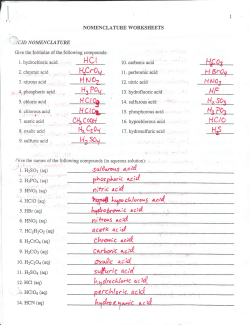 1
NOMENCLATURE WORKSHEETS
ACID NOMENCLATURE
Give the formulas of the following compounds:
1. hydrochloric acid HCl
2. chromic acid H2CrO4
3. nitrous acid HNO2
4. phosphoric acid H3PO4
5. chloric acid
6. chlorous acid
7. acetic acid CH3COOH
8. oxalic acid H2C2O4
9. sulfuric acid H2SO4
10. carbonic acid H2CO3
11. perbromic acid HBrO4
12. nitric acid HNO3
13. hydrofluoric acid HF
14. sulfurous acid H2SO3
15. phosphorous acid
16. hypochlorous acid HClO
17. hydrosulfuric acid H2S
Give the names of the following compounds (in aqueous solution):
1. H2SO3 (aq) sulfurous acid
2. H3PO4 (aq) phosphoric acid
3. HNO3 (aq) nitric acid
4. HClO (aq) hypochlorous acid
5. HBr (aq) hydrobromic acid
6. HNO2 (aq) nitrous acid
7. HC2H3O2 (aq) acetic acid
8. H2CrO4 (aq) chromic acid
9. H2CO3 (aq) carbonic acid
10. H2C2O4 (aq) oxalic acid
11. H2SO4 (aq) sulfuric acid
12. HCl (aq) hydrochloric acid
13. HClO4 (aq) perchloric acid
14. HCN (aq) hydrocyanic acid